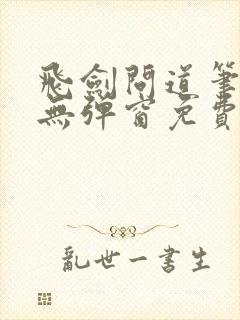 飛劍問道筆
無彈窗免費
亂世一書生